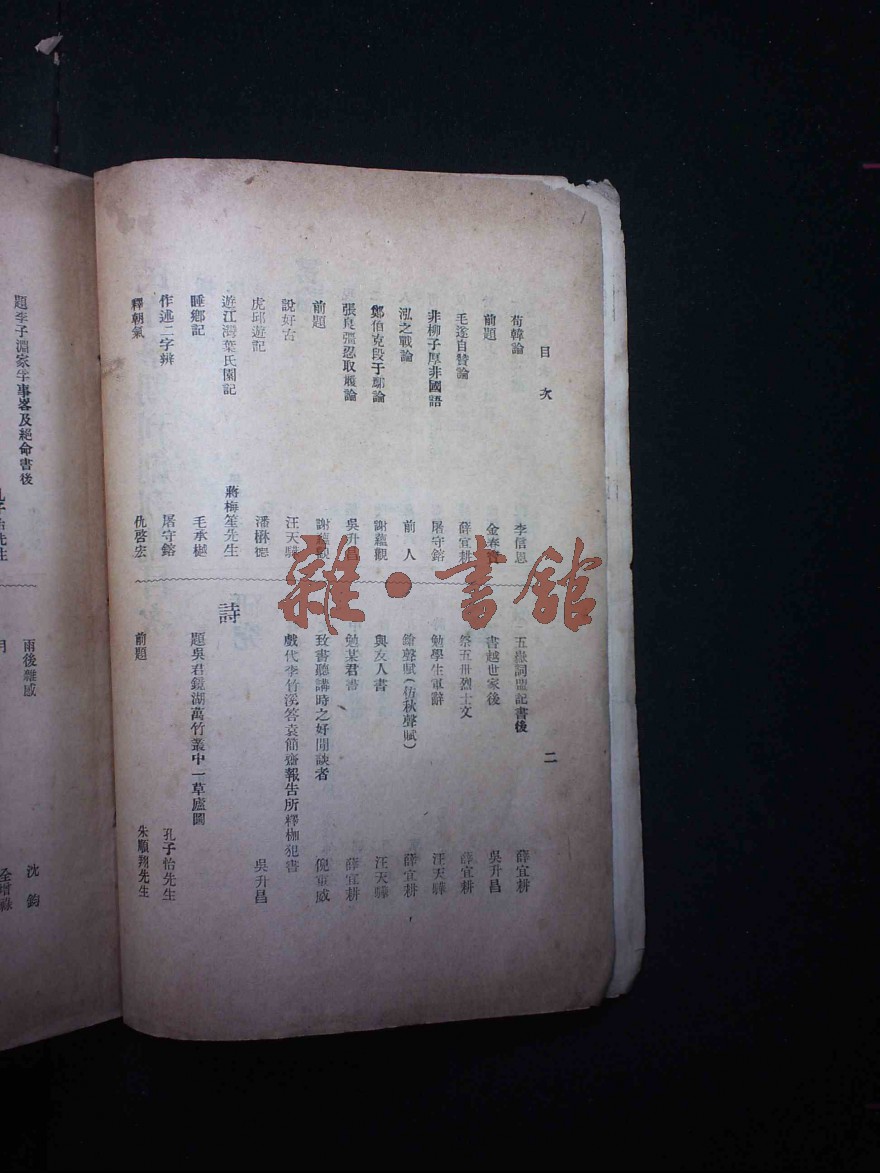 目次
二
荀韓論 李信恩
前題
毛遂自贊論 薛宜耕
非柳子厚非國語 屠守鎔
泓之戰論 前人
鄭伯克段于鄢論 謝蘊觀
張良彊忍取履論 吳升昌
前題 謝蘊觀
說好古 汪天驊
虎邱遊記
遊江灣葉氏園記 蔣梅笙先生
睡鄉記 毛承樾
作述二字辨 屠守鎔
釋朝氣 仇啓宏
五嶽詞盟記書後 薛宜耕
書越世家後 吳升昌
祭五卅烈士文 薛宜耕
勉學生軍辭 汪天驊
鎗聲賦(仿秋聲賦) 薛宜耕
與友人書 汪天驊
勉某君書 薛宜耕
致書聽講時之好閒談者 倪童威
戲代李竹溪答袁簡齋報告所釋枷犯書
吳升昌
詩
題吳君鏡湖萬竹叢中一草廬圖
孔子怡先生
前題 朱順翔先生
題李子淵家宰事畧及絕命書後
雨後雜感 沈鈞
雜·書館